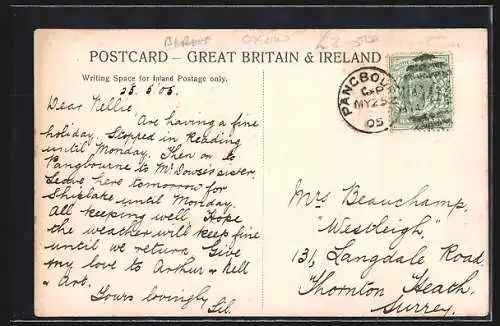 OXON £2.50
POSTCARD — GREAT BRITAIN & IRELAND
Writing Space for Inland Postage only.
25.5.05.
Dear Nellie
Are having a fine
holiday. Stopped in Reading
until Monday. Then on to
Pangbourne to Mr Dowse's sister.
Leave here tomorrow for
Shiplake until Monday.
All keeping well. Hope
the weather will keep fine
until we return. Give
my love to Arthur & Nell
& Art.
Yours lovingly
Lil.
PANGBOU
MY 25
05
Mrs Beauchamp.
"Westleigh."
131, Langdale Road
Thornton Heath.
Surrey.